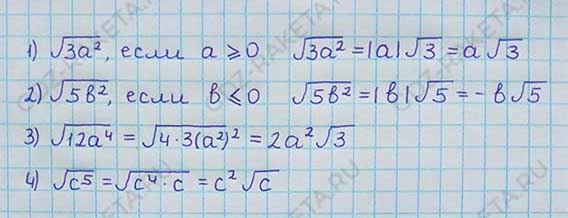 1) √3a², если a ⩾ 0 √3a² = |a|√3 = a√3
2) √5в², если в ⩽ 0 √5в² = |в|√5 = - в√5
3) √12a⁴ = √4·3(a²)² = 2a²√3
4) √c⁵ = √c⁴·c = c²√c